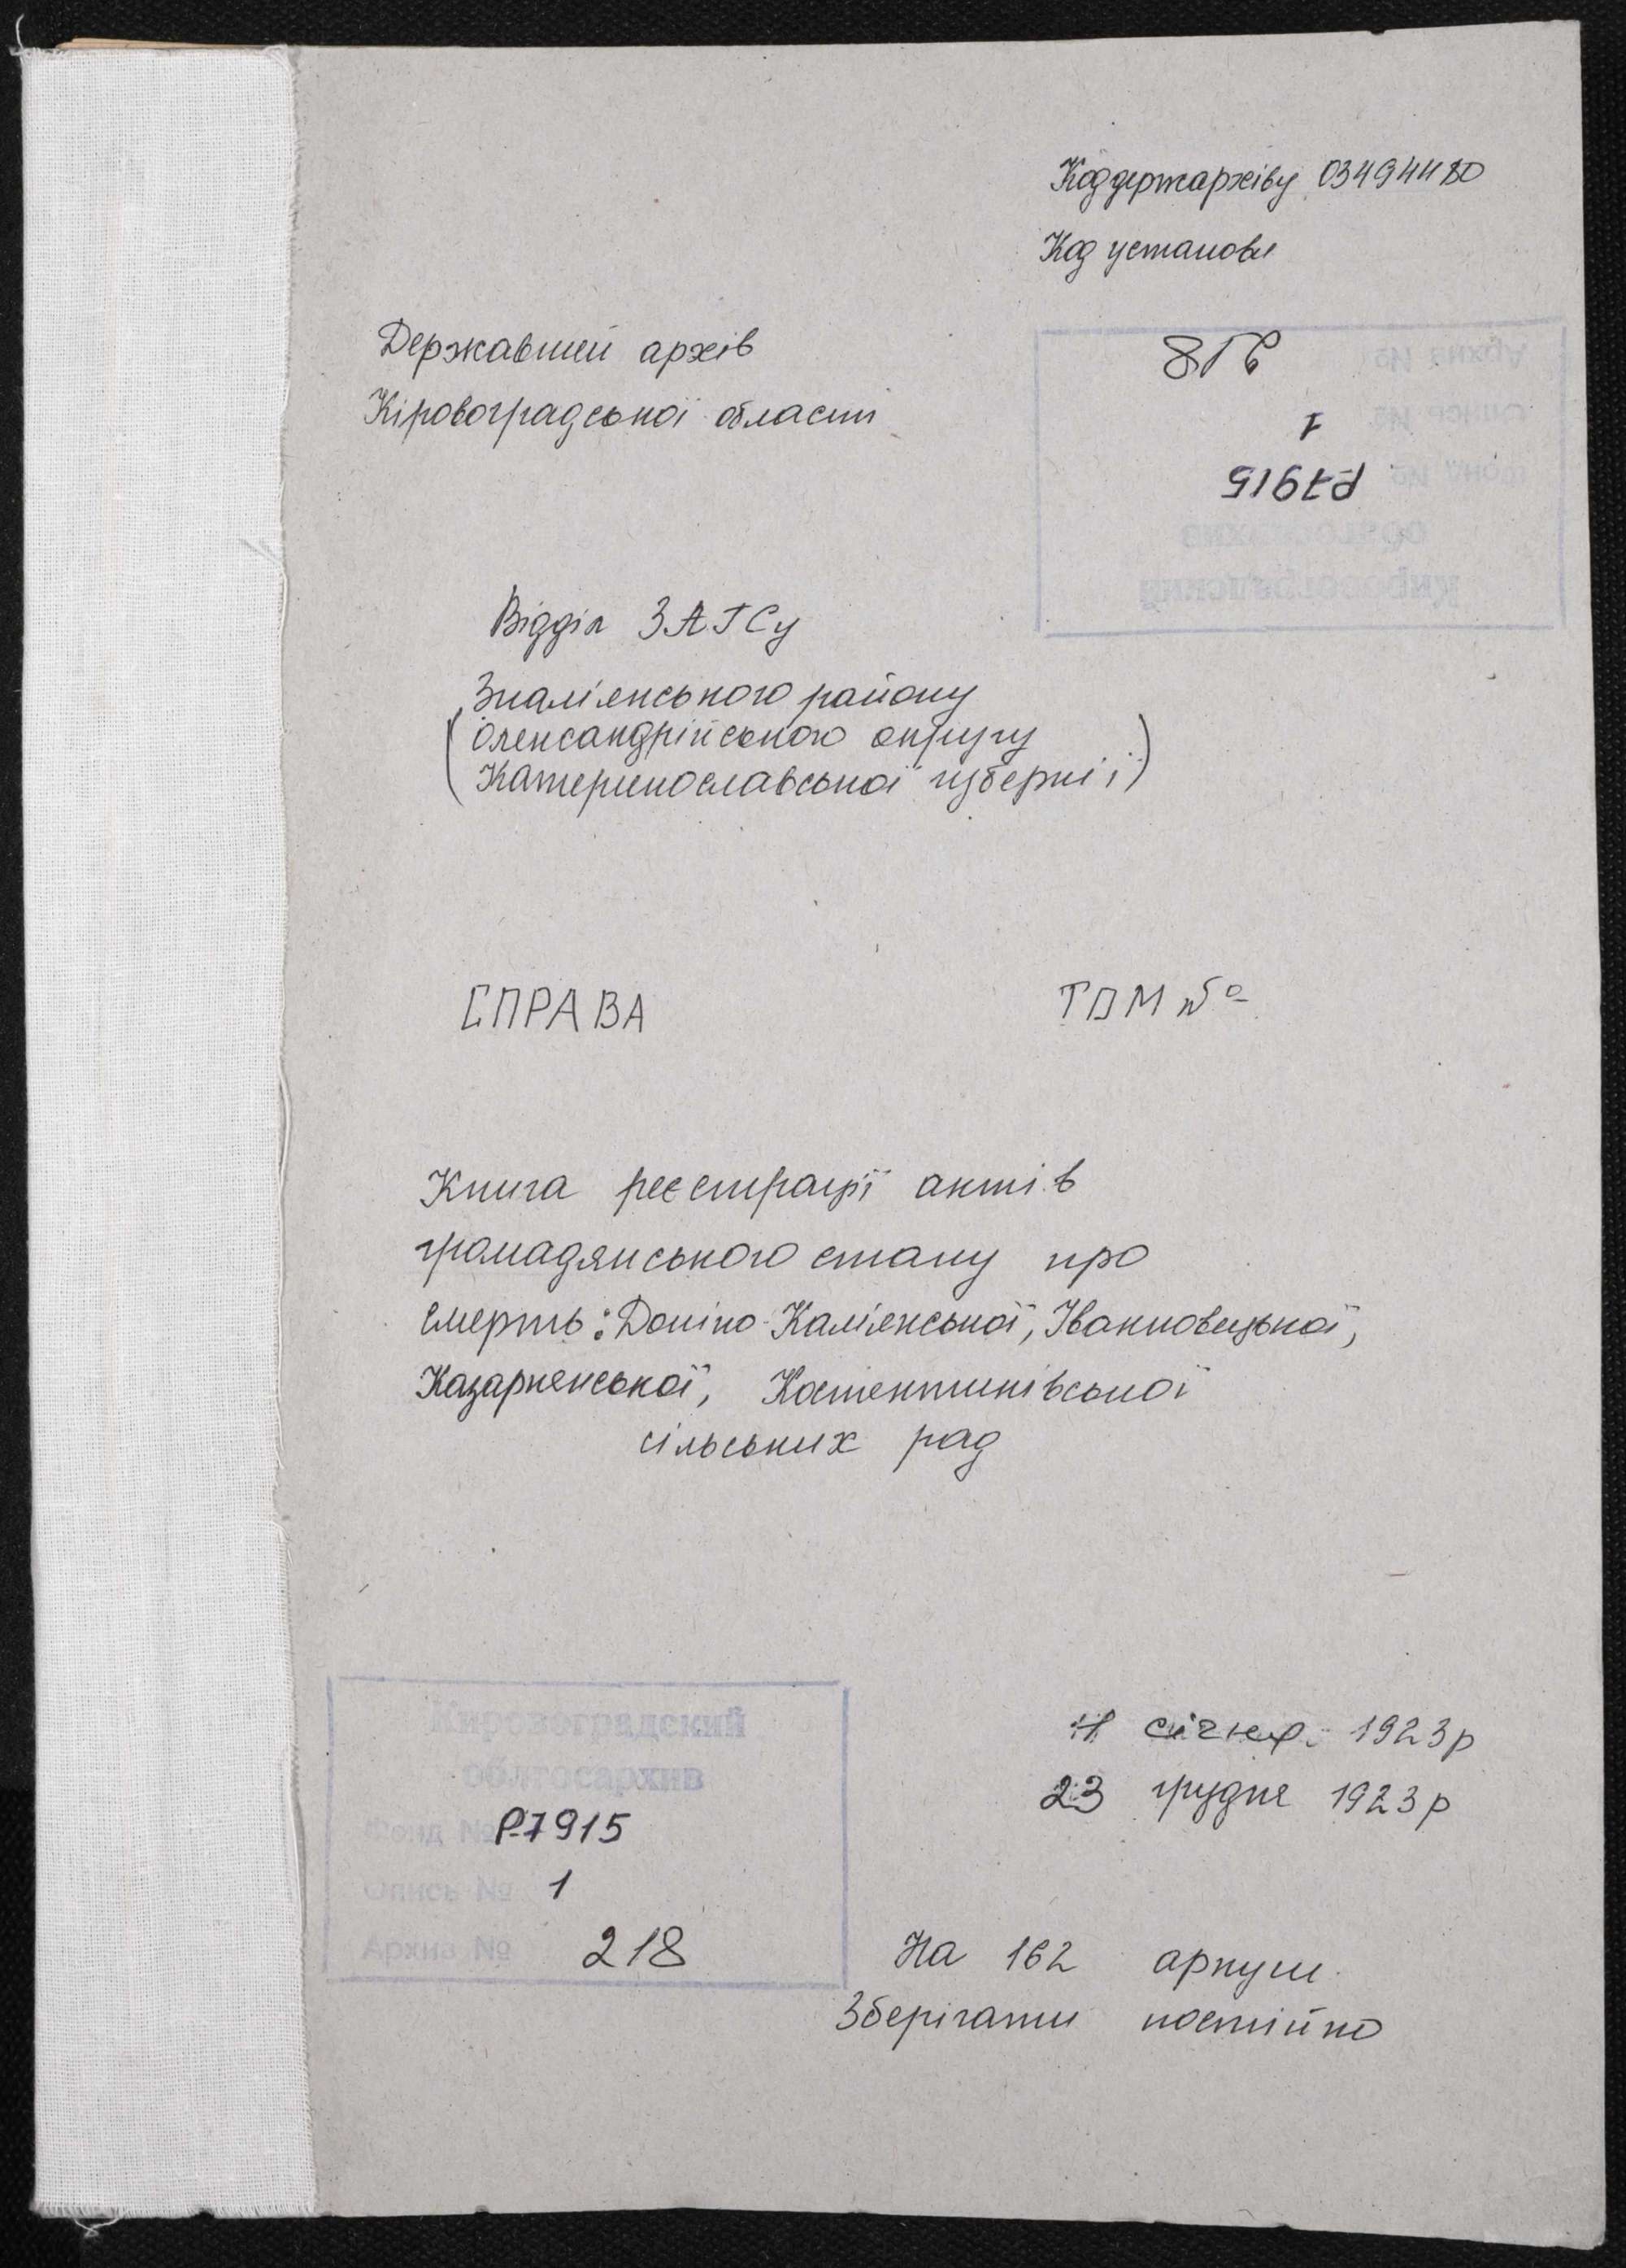 Код держархіву 03494480
Код установи
Державний архів
Кіровоградської області
Архив № 218
Опись № 1
Фонд № Р7915
облгосархив
Кировоградский
Відділ ЗАГСу
Знам'янського району
(Олександрійського округу
Катеринославської губернії)
СПРАВА ТОМ №
Книга реєстрації актів
громадянського стану про
смерть: Доніно-Кам'янської, Іванковецької,
Казарнянської, Костянтинівської
сільських рад
січня 1923р
23 грудня 1923р
Кировоградский
облгосархив
Фонд № Р-7915
Опись № 1
Архив № 218
На 162 аркуш.
Зберігати постійно